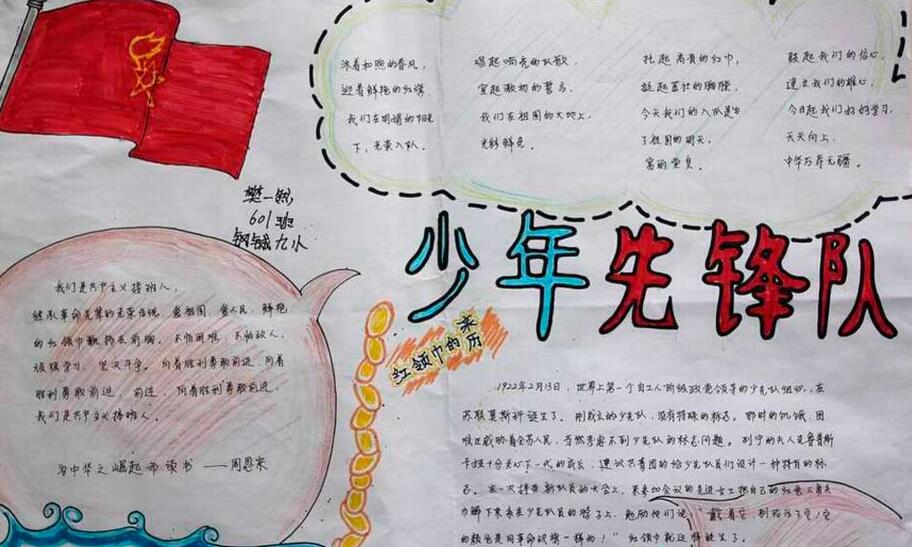 沐着和煦的春风,
迎着鲜艳的红旗
我们在明媚的阳光
下,光荣入队。
唱起响亮的队歌,
宣起激动的誓言,
我们在祖国的大地上,
光彩鲜亮。
扎起高贵的红巾,
挺起茁壮的胸膛
今天我们的入队是为
了祖国的明天,
富丽堂皇。
鼓起我们的信心,
建立我们的雄心,
今日起我们好好学习,
天天向上,
中华万寿无疆。
樊一
601班
钢城九小
少年先锋队
我们是共产主义接班人,
继承革命先辈的光荣传统, 爱祖国, 爱人民, 鲜艳
的红领巾飘扬在前胸。不怕困难, 不怕敌人,
顽强学习, 坚决斗争。向着胜利勇敢前进,向着
胜利勇敢前进, 前进, 向着胜利勇敢前进,
我们是共产主义接班人。
为中华之崛起而读书 ——周恩来
红领巾的来历
1922年2月13日,世界上第一个由工人阶级政党领导的少先队组织,在
苏联莫斯科诞生了。刚成立的少先队,没有特殊的标志。那时的饥饿、困
难正威胁着全苏人民,当然考虑不到少先队的标志问题。列宁的夫人克鲁普斯
卡娅十分关心下一代的成长,建议共青团的给少先队员们设计一种特有的标
志。在一次接受新队员的大会上,来参加会议的先进女工把自己的红色三角头
巾解下来系在少先队员的脖子上,勉励他们说:"戴着它,别玷污了它!它
的颜色是同革命战旗一样的!"红领巾就这样诞生了。